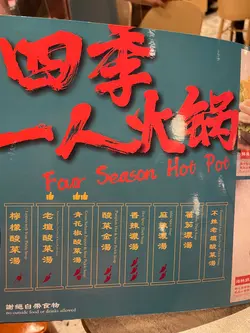 四季
一人火锅
Four Season Hot Pot
檸檬酸菜湯
老壇酸菜湯
青花椒酸菜湯
酸菜金湯
香辣濃湯
麻辣濃湯
蕃茄濃湯
不辣老壇酸菜湯
謝絕自帶食物
no outside food or drinks allowed